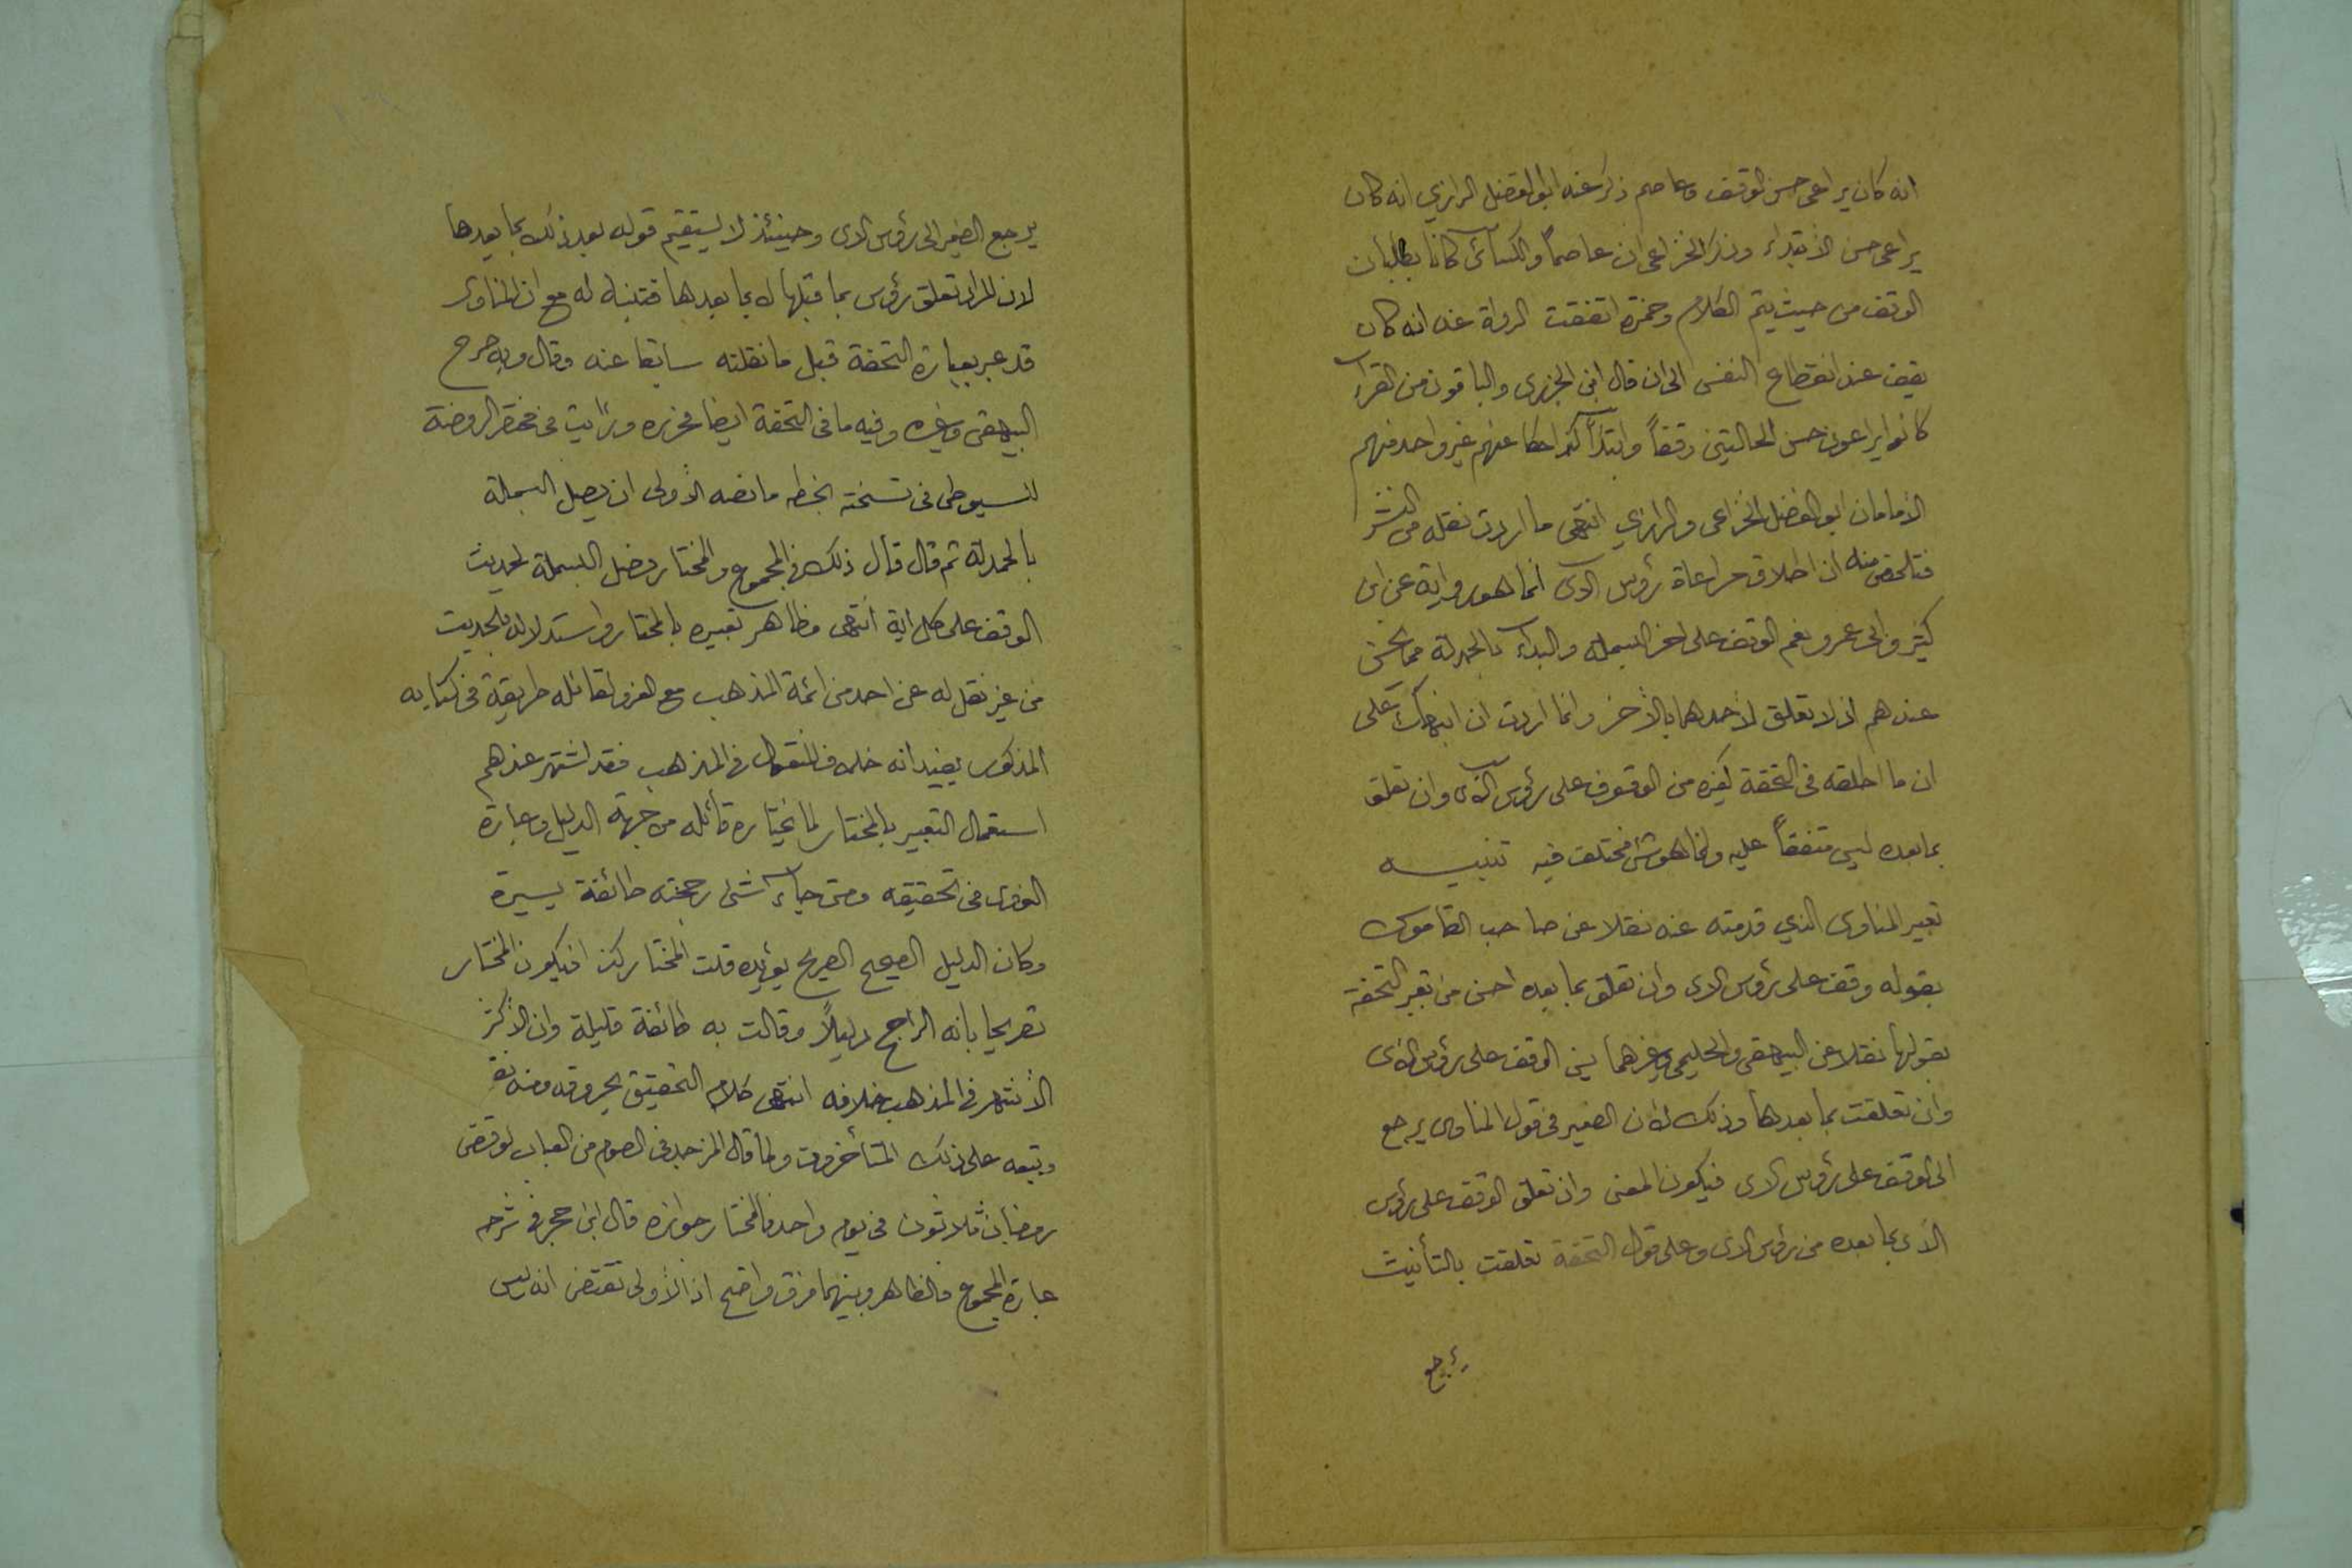 انه كان يراعى حسن الوقف وعاصم ذكر عنه ابو الفضل الرازي انه كان
يراعى حسن الأبتداء وذكر الخزاعى ان عاصماً والكسآئى كانا يطلبان
الوقف من حيث يتم الكلام وحمزة اتفقت الرواة عنه انه كان
يقف عند انقطاع النفس الى ان قال ابن الجزرى والباقون من القرآء
كانوا يراعون حسن الحالتين وقفاً وابتدآ كذا حكا عنهم غير واحد منهم
الأمامان ابو الفضل الخزاعى والرازي انتهى ما اردت نقله من النشر
فتلخص منه ان اطلاق مراعاة رؤس الآى انما هو رواية عن ابن
كثير وابى عمرو نعم الوقف على اخر البسملة والبدآء بالحمدلة مما يحسن
عندهم اذ لا تعلق لأحدهما بالأخر وانما اردت ان انبهك على
ان ما اطلقه فى التحفة كغيره من الوقوف على رؤس الآى وان تعلق
بما بعده ليس متفقاً عليه وانما هو شئ مختلف فيه تنبيه
تعبير المناوى الذي قدمته عنه نقلا عن صاحب القاموس
بقوله وقف على رؤس الاى وان تعلق بما بعده احسن من تعبير التحفة
بقولها نقلا عن البيهقى والحليمى وغيرهما يسن الوقف على رؤس الأى
وان تعلقت بما بعدها وذلك لأن الضمير فى قول المناوى يرجع
الى الوقف على رؤس الاى فيكون المعنى وان تعلق الوقف على رؤس
الأى بما بعده من رؤس الاى وعلى قول التحفة تعلقت بالتأنيث
يرجع
يرجع الضمير الى رؤس الاى وحينئذ لا يستقيم قوله بعد ذلك بما بعدها
لان المراد تعلق رؤس بما قبلها لا بما بعدها فتنبه له مع ان المناوى
قد عبر بعبارة التحفة قبل ما نقلته سابقا عنه وقال وبه صرح
البيهقى وغيره وفيه ما فى التحفة ايضا فحرره ورأيت فى مختصر الروضة
للسيوطى فى نسخة بخطه ما نصه الأولى ان يصل البسملة
بالحمدلة ثم قال قال ذلك فى المجموع والمختار فصل البسملة لحديث
الوقف على كل اية انتهى فظاهر تعبيره بالمختار واستدلاله بالحديث
من غير نقل له عن احد من ائمة المذهب مع العزو لقائله طريقة فى كتابه
المذكور يفيد انه خلاف المنقول فى المذهب فقد اشتهر عندهم
استعمال التعبير بالمختار لما يختاره قائله من جهة الدليل وعبارة
النووى فى تحقيقه ومتى جآء شئ رجحته طائفة يسيرة
وكان الدليل الصحيح الصريح يؤيده قلت المختار كذا فيكون المختار
تصريحا بانه الراجح دليلاً وقالت به طائفة قليلة وان الأكثر
الأشهر فى المذهب خلافه انتهى كلام التحقيق بحروفه ومنه
وتبعه على ذلك المتأخرون ولما قال المزجد فى الصوم من العباب لو قضى
رمضان ثلاثون فى يوم واحد فالمختار جوازه قال ابن حجر فى شرحه
عبارة المجموع فالظاهر وبينهما فرق واضح اذ الأولى تقتضى انه ليس